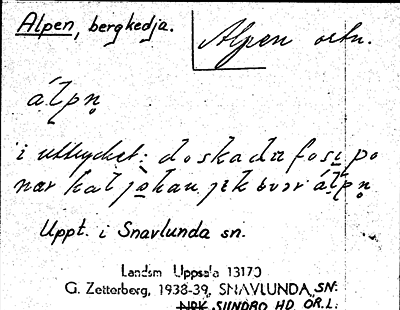 Alpen, bergkedja.
Alpen ortn.
álpn̥
i uttrycket: doska du fosi po
nær kal johan jik øvør álpn̥
Uppt. i Snavlunda sn.
Landsm Uppsala 13170
G. Zetterberg, 1938-39, SNAVLUNDA SN:
SUNDBO HD ÖR.L: